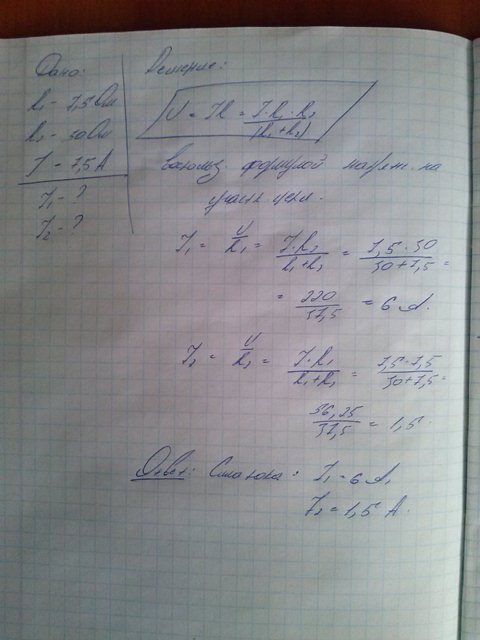 Дано:
R₁ - 7,5 Ом
R₂ - 30 Ом
I - 7,5 А
I₁ - ?
I₂ - ?
Решение:
U = IR = I·R₁·R₂ / (R₁+R₂)
формулой напряж. на
участ. цепи.
I₁ = U/R₁ = I·R₂ / R₁+R₂ = 7,5·30 / 30+7,5 =
= 220 / 37,5 = 6 А.
I₂ = U/R₂ = I·R₁ / R₁+R₂ = 7,5·7,5 / 30+7,5 =
56,25 / 37,5 = 1,5.
Ответ: Сила тока: I₁ = 6 А,
I₂ = 1,5 А.